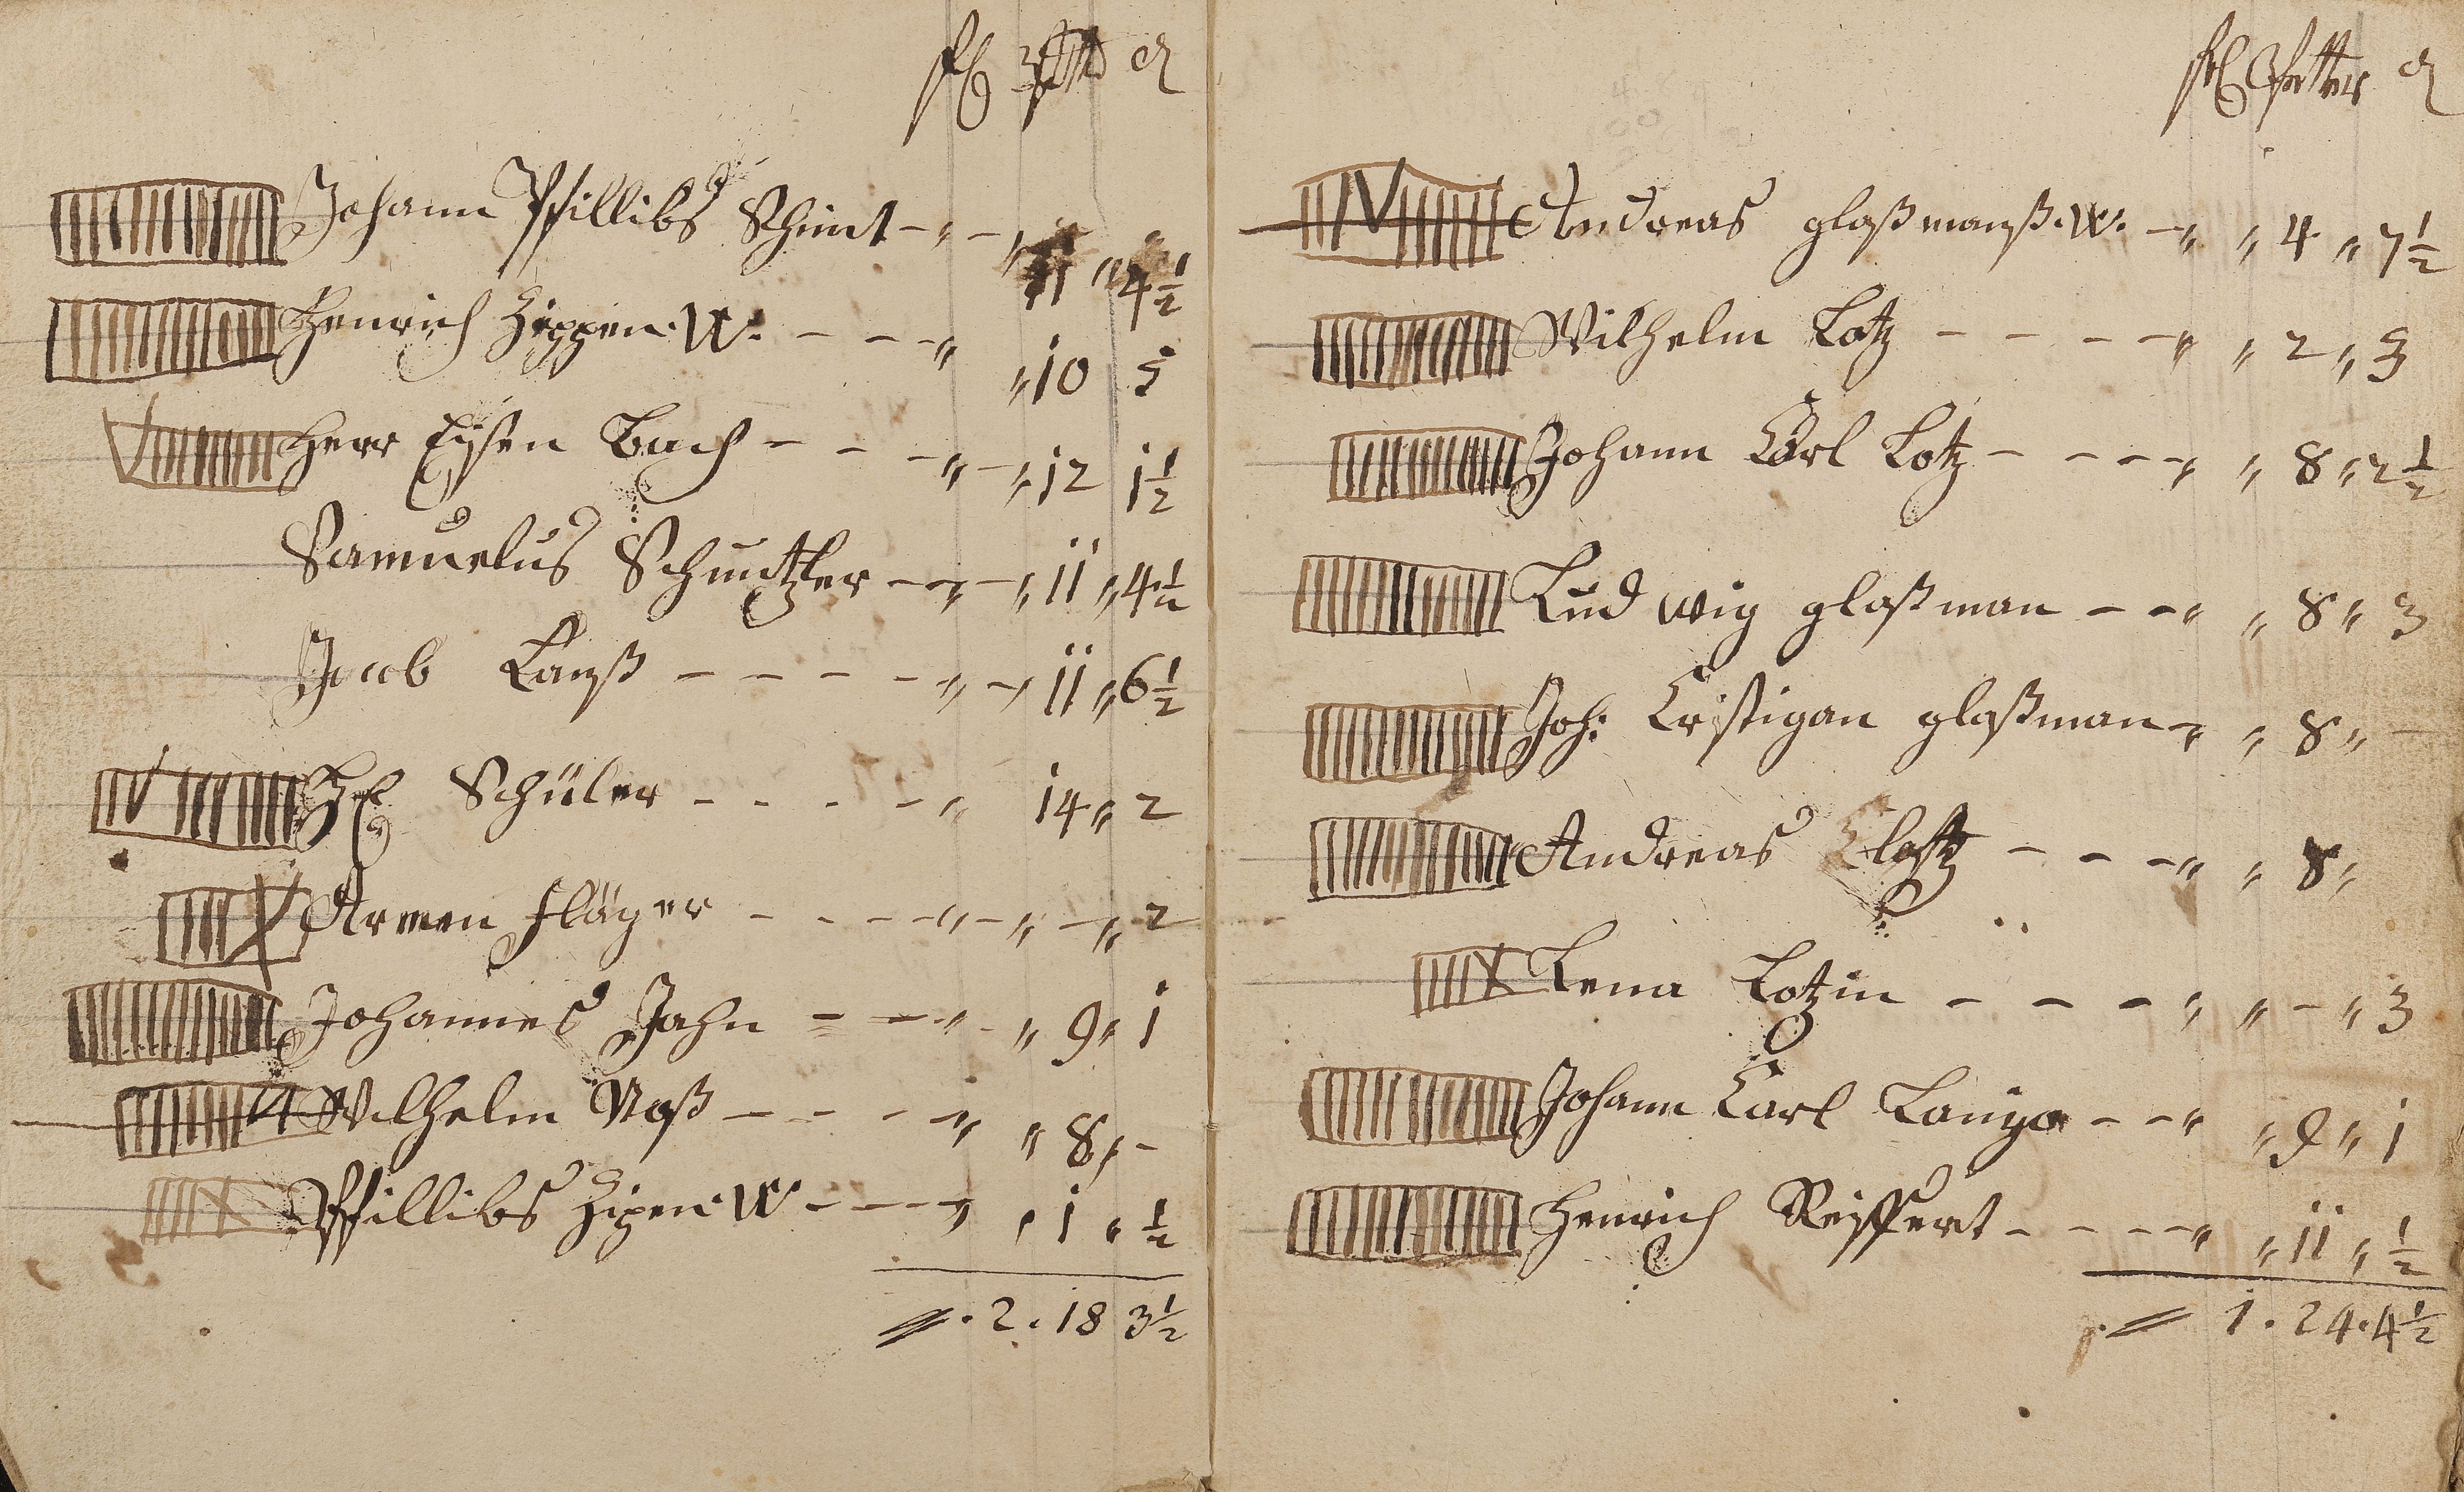 Johann Pfillibs Schmit - „ - „ 11 „ 4 1/2
Henrich Zippen. W. - - - „ „ 10 5
Herr Eysen Bach - - - „ - „ 12 1 1/2
Samuelus Schmitzler - - „ - „ 11 „ 4 1/2
Jacob Lanß - - - - „ - „ 11 „ 6 1/2
Schüler - - - - „ 14 „ 2
Armen Fläger - - - - „ - „ - „ 2
Johannes Jahn - - - „ - „ 9 „ 1
Wilhelm Noß - - - - „ „ 8 „ -
Pfillibs Zipen. W. - - - - „ „ 1 „ 1/2
2. 18 3 1/2
Andreas glaßmanß. W. - „ „ 4 „ 7 1/2
Wilhelm Lotz - - - - „ „ 2 „ 3
Johann Carl Lotz - - - - „ „ 8 „ 2 1/2
Ludwig glaßman - - „ „ 8 „ 3
Joh: Cristigan glaßman - „ „ 8 „ -
Andreas - - - „ „ 8 „
Lena Lotzin - - - „ „ - „ 3
Johann Carl - - „ „ 9 „ 1
Henrich Reiffert - - - - „ „ 11 „ 1/2
1. 24. 4 1/2